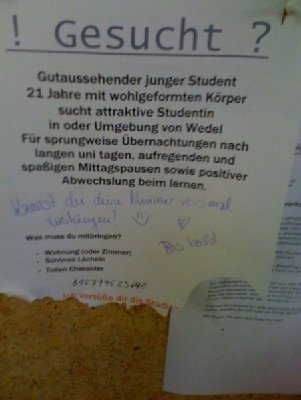 ! Gesucht ?
Gutaussehender junger Student
21 Jahre mit wohlgeformten Körper
sucht attraktive Studentin
in oder Umgebung von Wedel
Für sprungweise Übernachtungen nach
langen uni tagen, aufregenden und
spaßigen Mittagspausen sowie positiver
Abwechslung beim lernen.
Kannst du deine Nummer nochmal
aushängen?
Bis bald
Was muss du mitbringen?
- Wohnung (oder Zimmer)
- Schönes Lächeln
- Tollen Charakter
Ich versüße dir die Studi